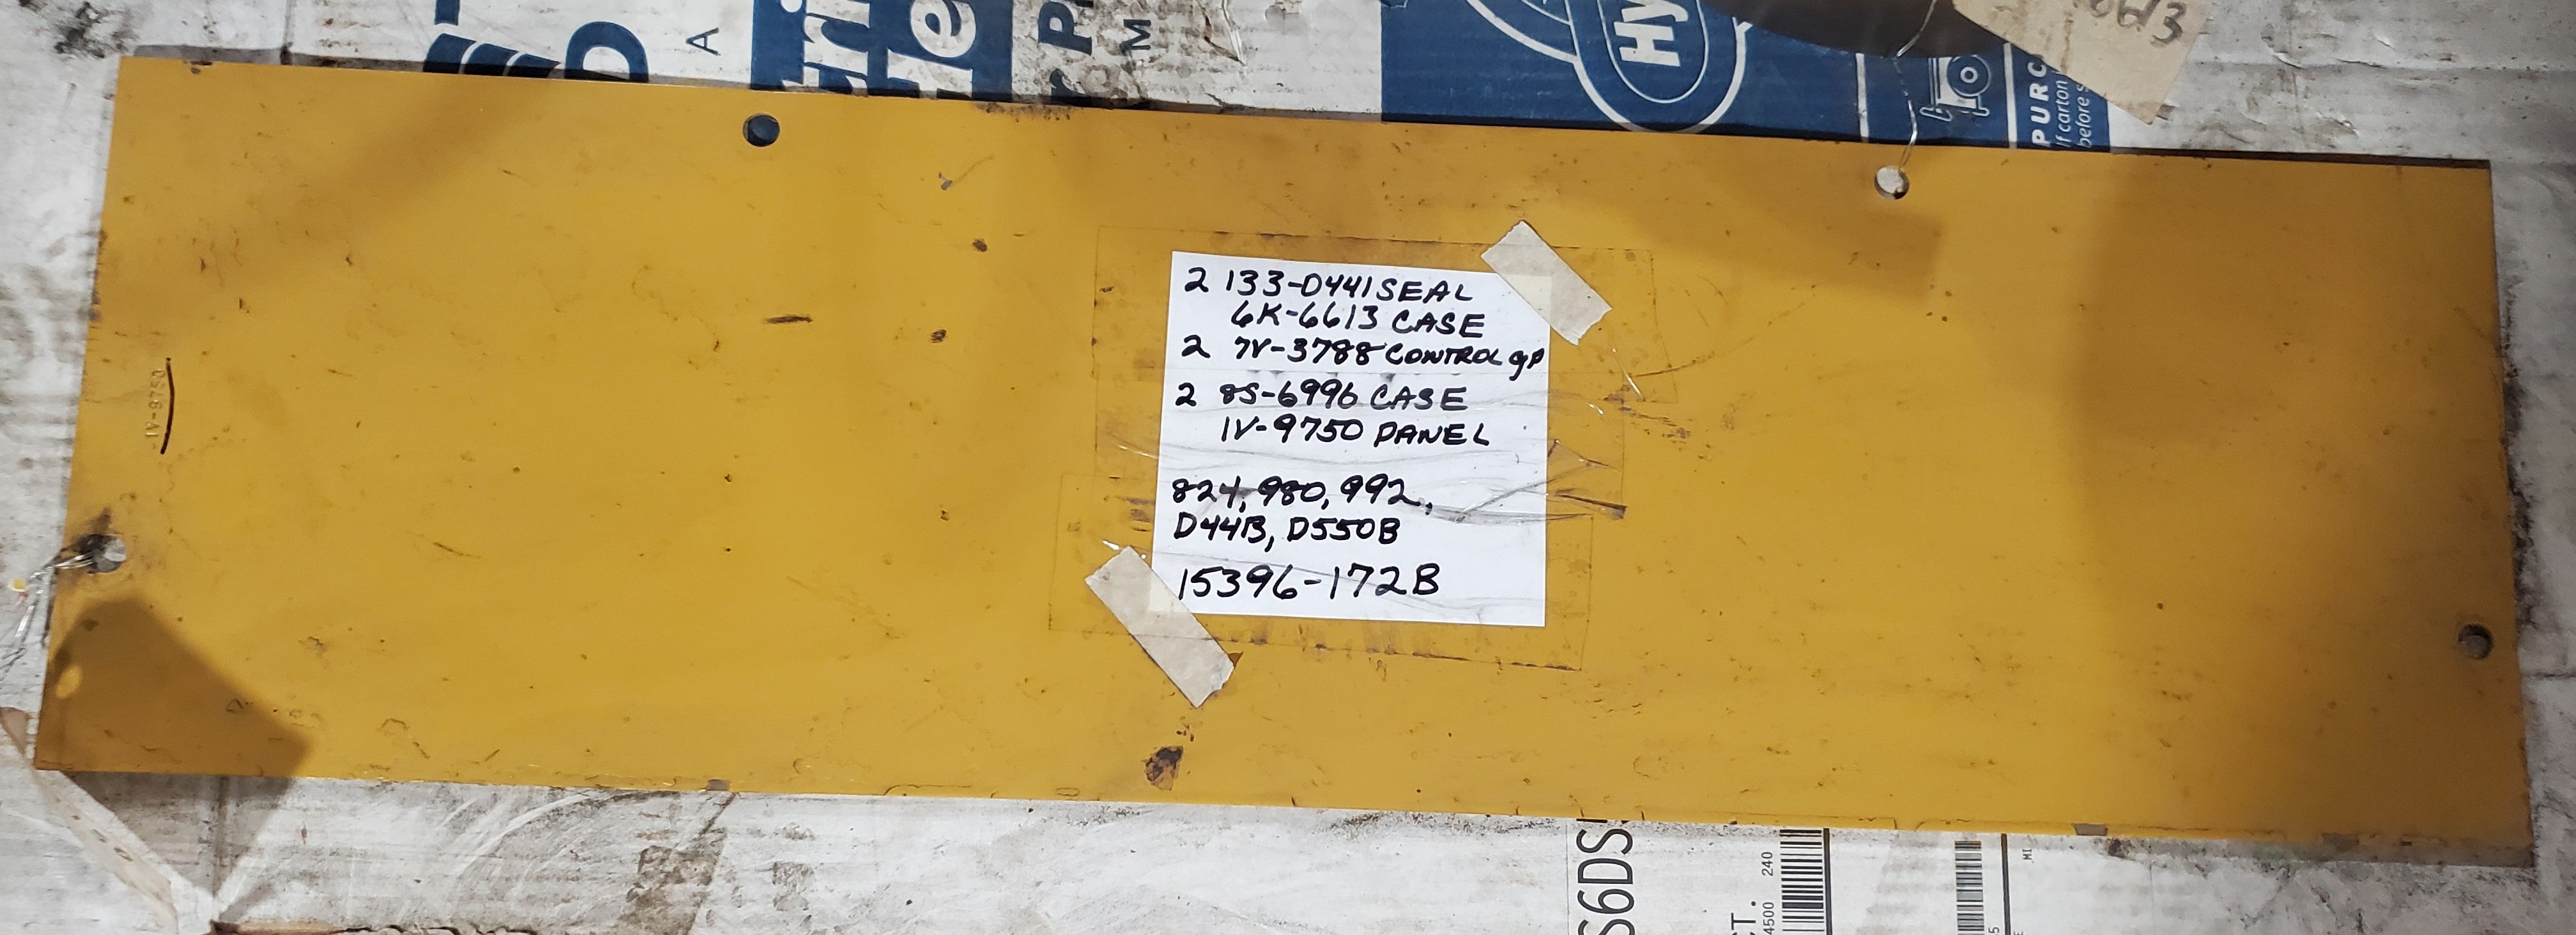 A
M
Hy
PURC
If carton i
before s
2 133-0441 SEAL
6K-6613 CASE
2 7V-3788 CONTROL gP
2 8S-6996 CASE
1V-9750 PANEL
824, 980, 992,
D44B, D550B
15396-172B
1V-9750
S6DS
CT.
4500 240
MI
5